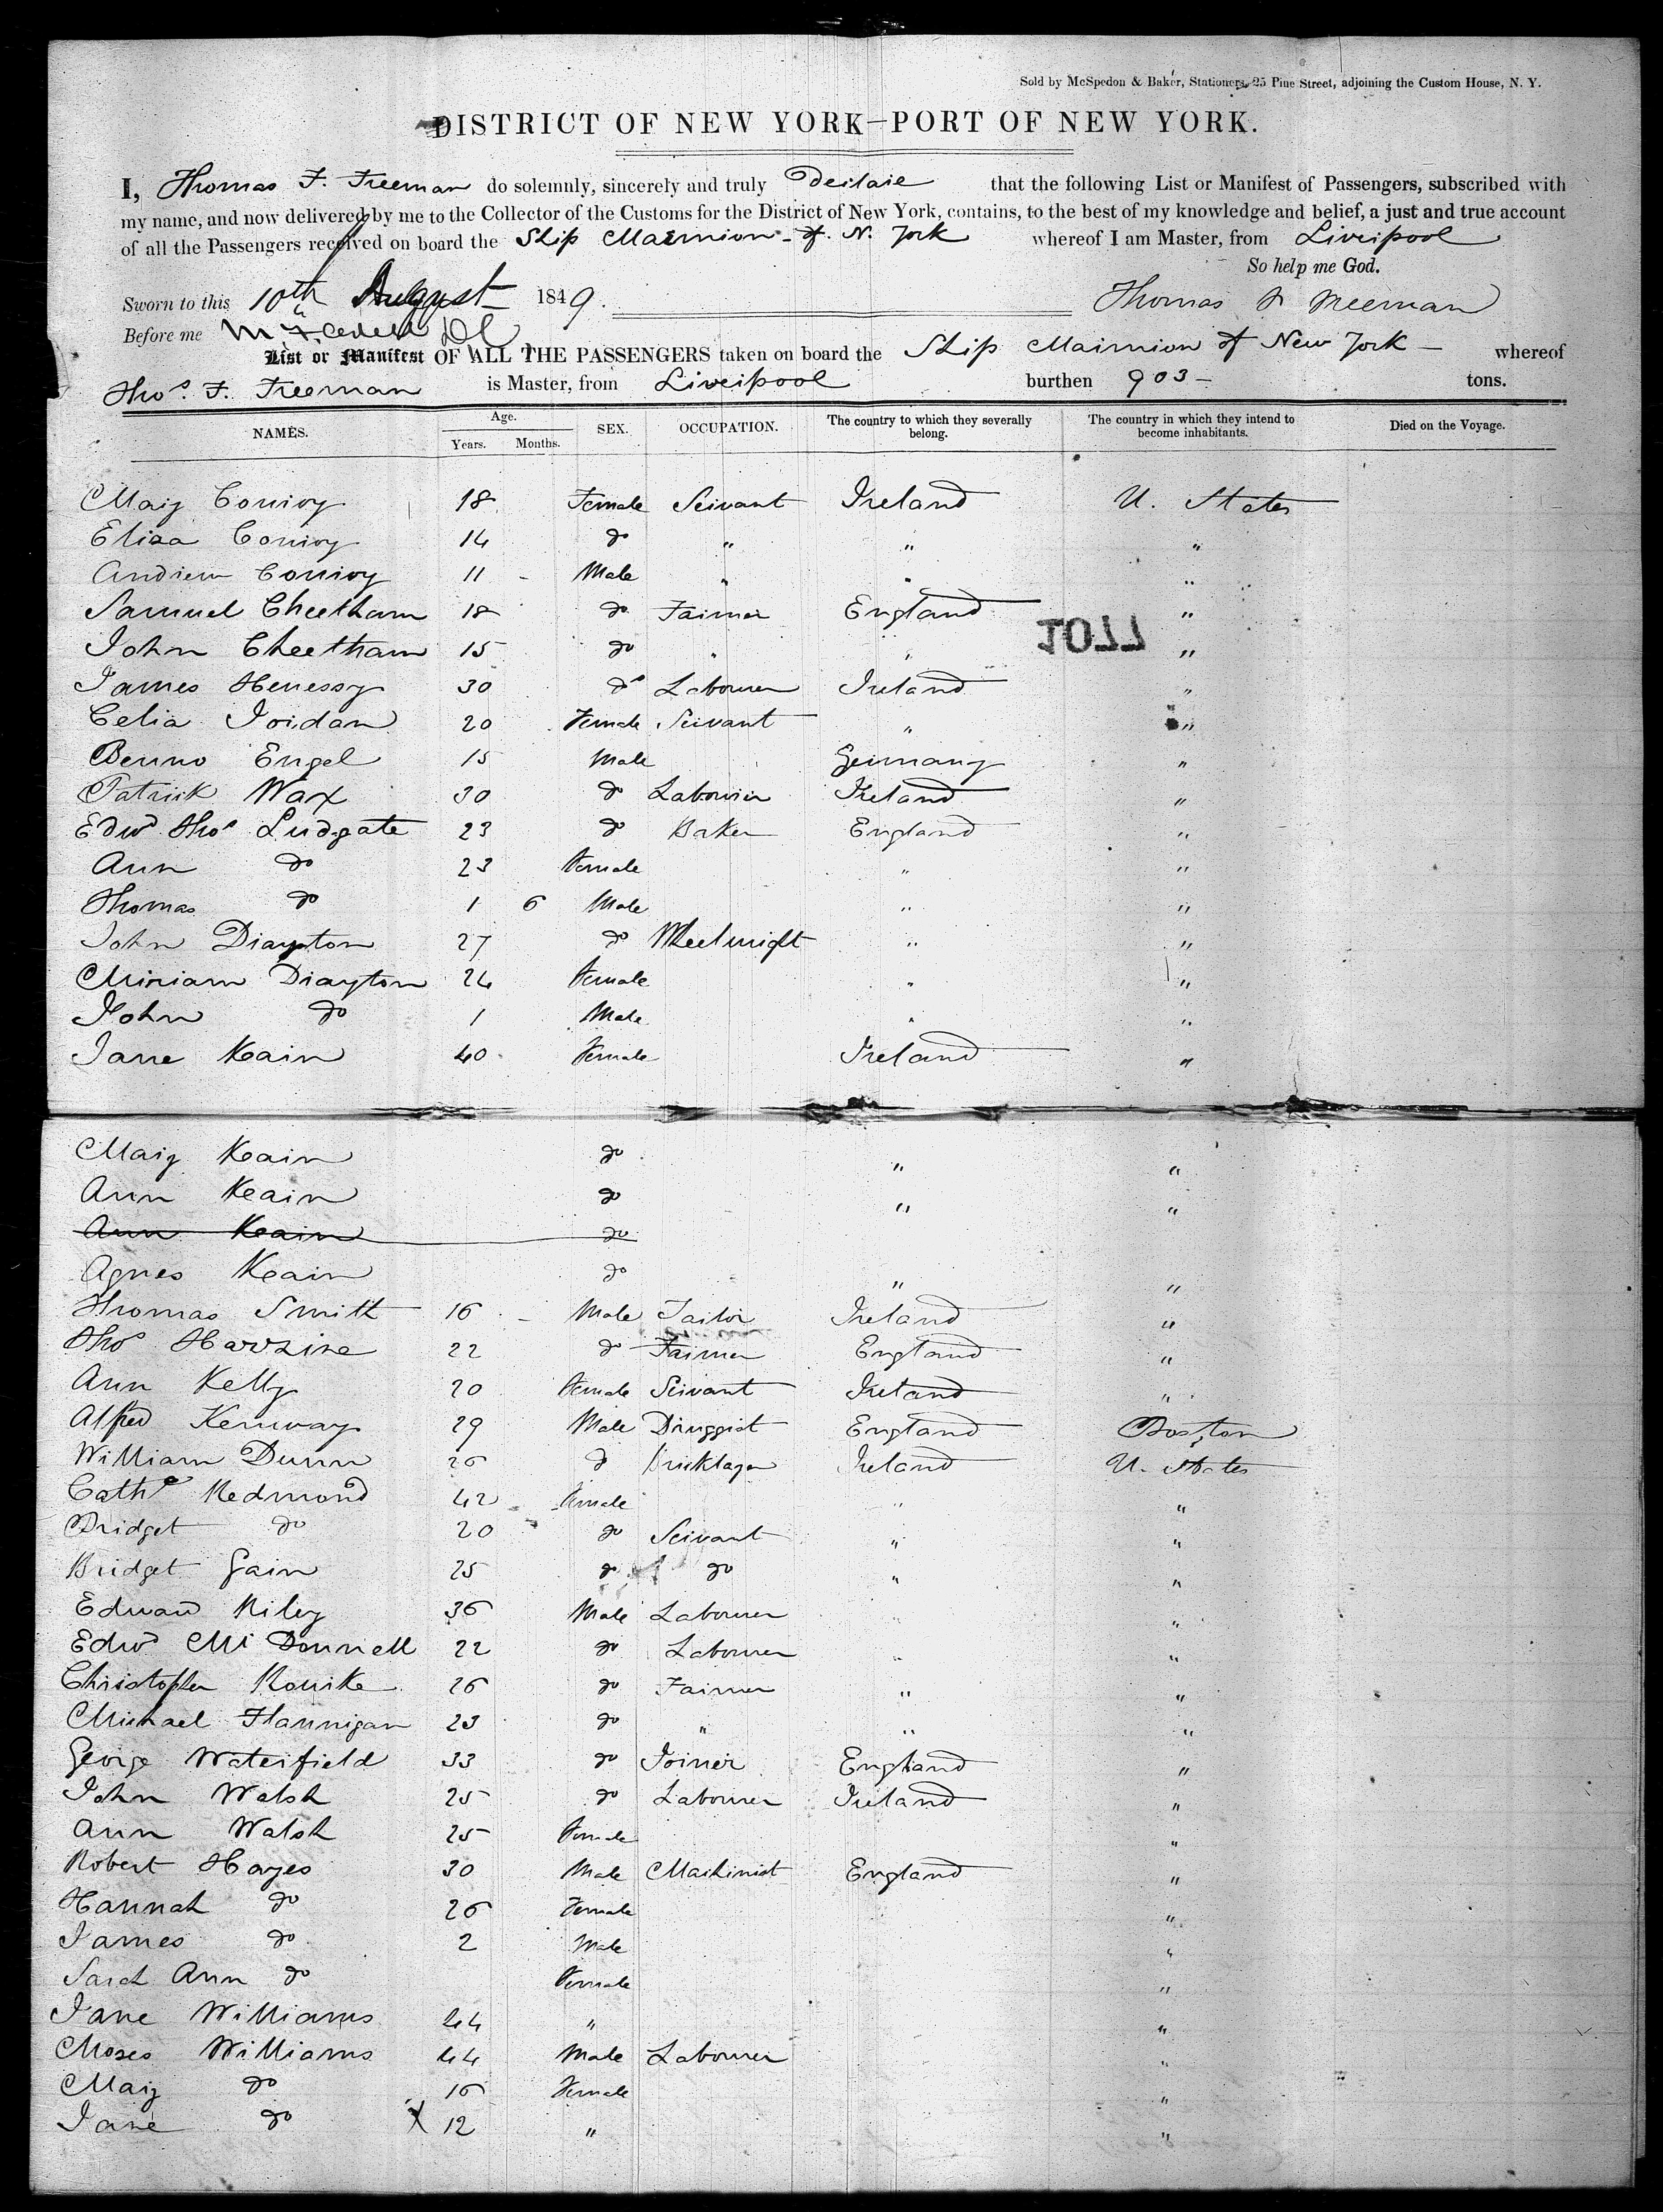 Sold by McSpedon & Baker, Stationers, 25 Pine Street, adjoining the Custom House, N. Y.
DISTRICT OF NEW YORK—PORT OF NEW YORK.
I, Thomas F. Freeman do solemnly, sincerely and truly Declare that the following List or Manifest of Passengers, subscribed with
my name, and now delivered by me to the Collector of the Customs for the District of New York, contains, to the best of my knowledge and belief, a just and true account
of all the Passengers received on board the Ship Marmion of N. York whereof I am Master, from Liverpool
So help me God.
Sworn to this 10th August 1849. Thomas F Freeman
Before me
List or Manifest OF ALL THE PASSENGERS taken on board the Ship Marmion of New York — whereof
Thos. F. Freeman is Master, from Liverpool burthen 903 — tons.
NAMES. Age. Years. Months. SEX. OCCUPATION. The country to which they severally belong. The country in which they intend to become inhabitants. Died on the Voyage.
Mary Conroy 18 Female Servant Ireland U. States
Eliza Conroy 14 do " " "
Andrew Conroy 11 - Male " " "
Samuel Cheetham 18 do Farmer England "
1077
John Cheetham 15 do " " "
James Henessy 30 do Labourer Ireland "
Celia Jordan 20 Female Servant " "
Benno Engel 15 Male Germany "
Patrick Wax 30 do Labourer Ireland "
Edwd Thos Ludgate 23 do Baker England "
Ann do 23 Female " "
Thomas do 1 6 Male " "
John Drayton 27 do Wheelwright " "
Miriam Drayton 24 Female " "
John do 1 Male " "
Jane Keain 40 Female Ireland "
Mary Keain do " "
Ann Keain do " "
Ann Keain do
Agnes Keain do " "
Thomas Smith 16 - Male Tailor Ireland "
Thos 22 do Farmer England "
Ann Kelly 20 Female Servant Ireland "
Alfred Kenway 29 Male Druggist England Boston
William Dunn 26 d Bricklayer Ireland U. States
Cathe Redmond 42 Female " "
Bridget do 20 do Servant " "
Bridget Gain 25 do do " "
Edward Riley 36 Male Labourer " "
Edwd McDonnell 22 do Labourer " "
Christopher Rourke 26 do Farmer " "
Michael Flannigan 23 do " " "
George Waterfield 33 do Joiner England "
John Walsh 25 do Labourer Ireland "
Ann Walsh 25 Female "
Robert Hayes 30 Male Machinist England "
Hannah do 26 Female "
James do 2 Male "
Sarah Ann do Female "
Jane Williams 44 " "
Moses Williams 44 Male Labourer "
Mary do 16 Female "
Jane do X 12 " "